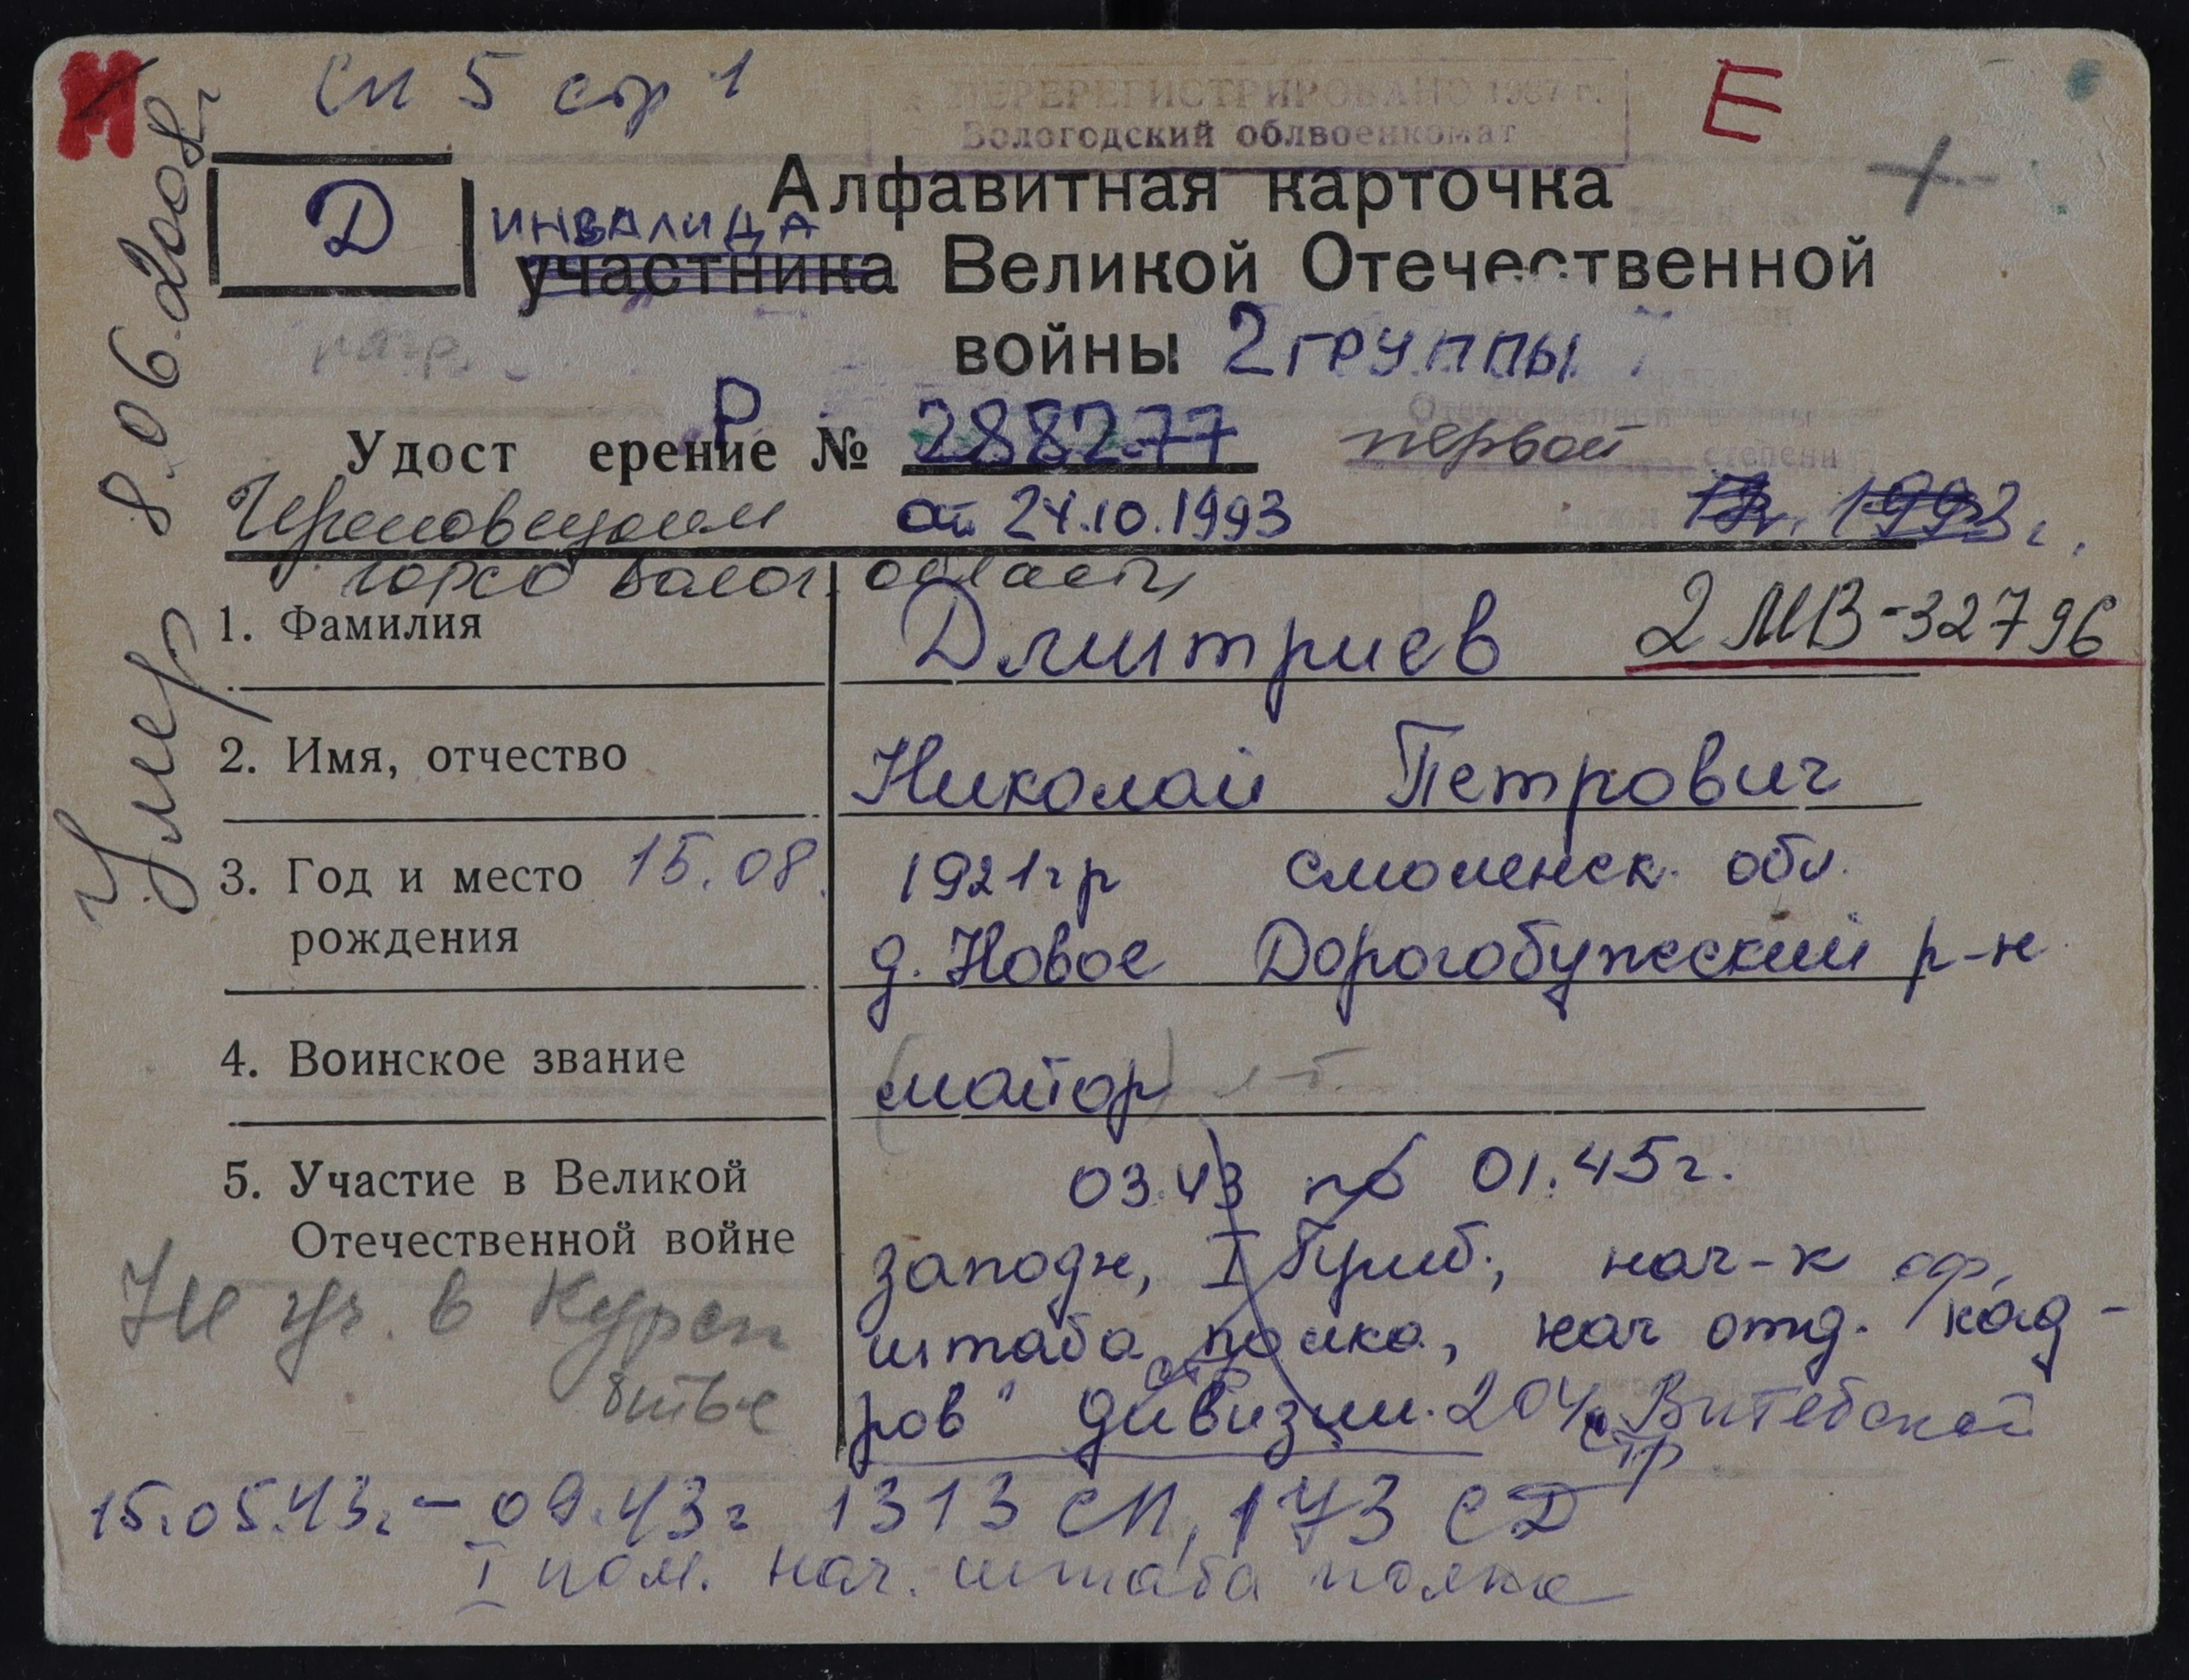 М
сп 5 стр 1
ПЕРЕРЕГИСТРИРОВАНО 1987 г.
Вологодский облвоенкомат
Е
+
Д
Алфавитная карточка
инвалида
участника Великой Отечественной
войны 2 группы
Р
Удост ерение № 288277 первой
степени
от 24.10.1993 1993 г.
горсо Волог. области
1. Фамилия Дмитриев 2 МВ-32796
2. Имя, отчество Николай Петрович
3. Год и место 15.08. 1921 гр смоленск. обл.
рождения д. Новое Дорогобужский р-н
4. Воинское звание (майор)
5. Участие в Великой 03.43 по 01.45г.
Отечественной войне западн, I Приб., нач-к оф.
штаба полка, нач отд. кад-
ров" стр дивизии. 204 Витебской
стр
Не уч. в Курск
битве
15.05.43г. - 09.43г 1313 СП, 173 СД
I пом. нач. штаба полка
Умер 8.06.2008г